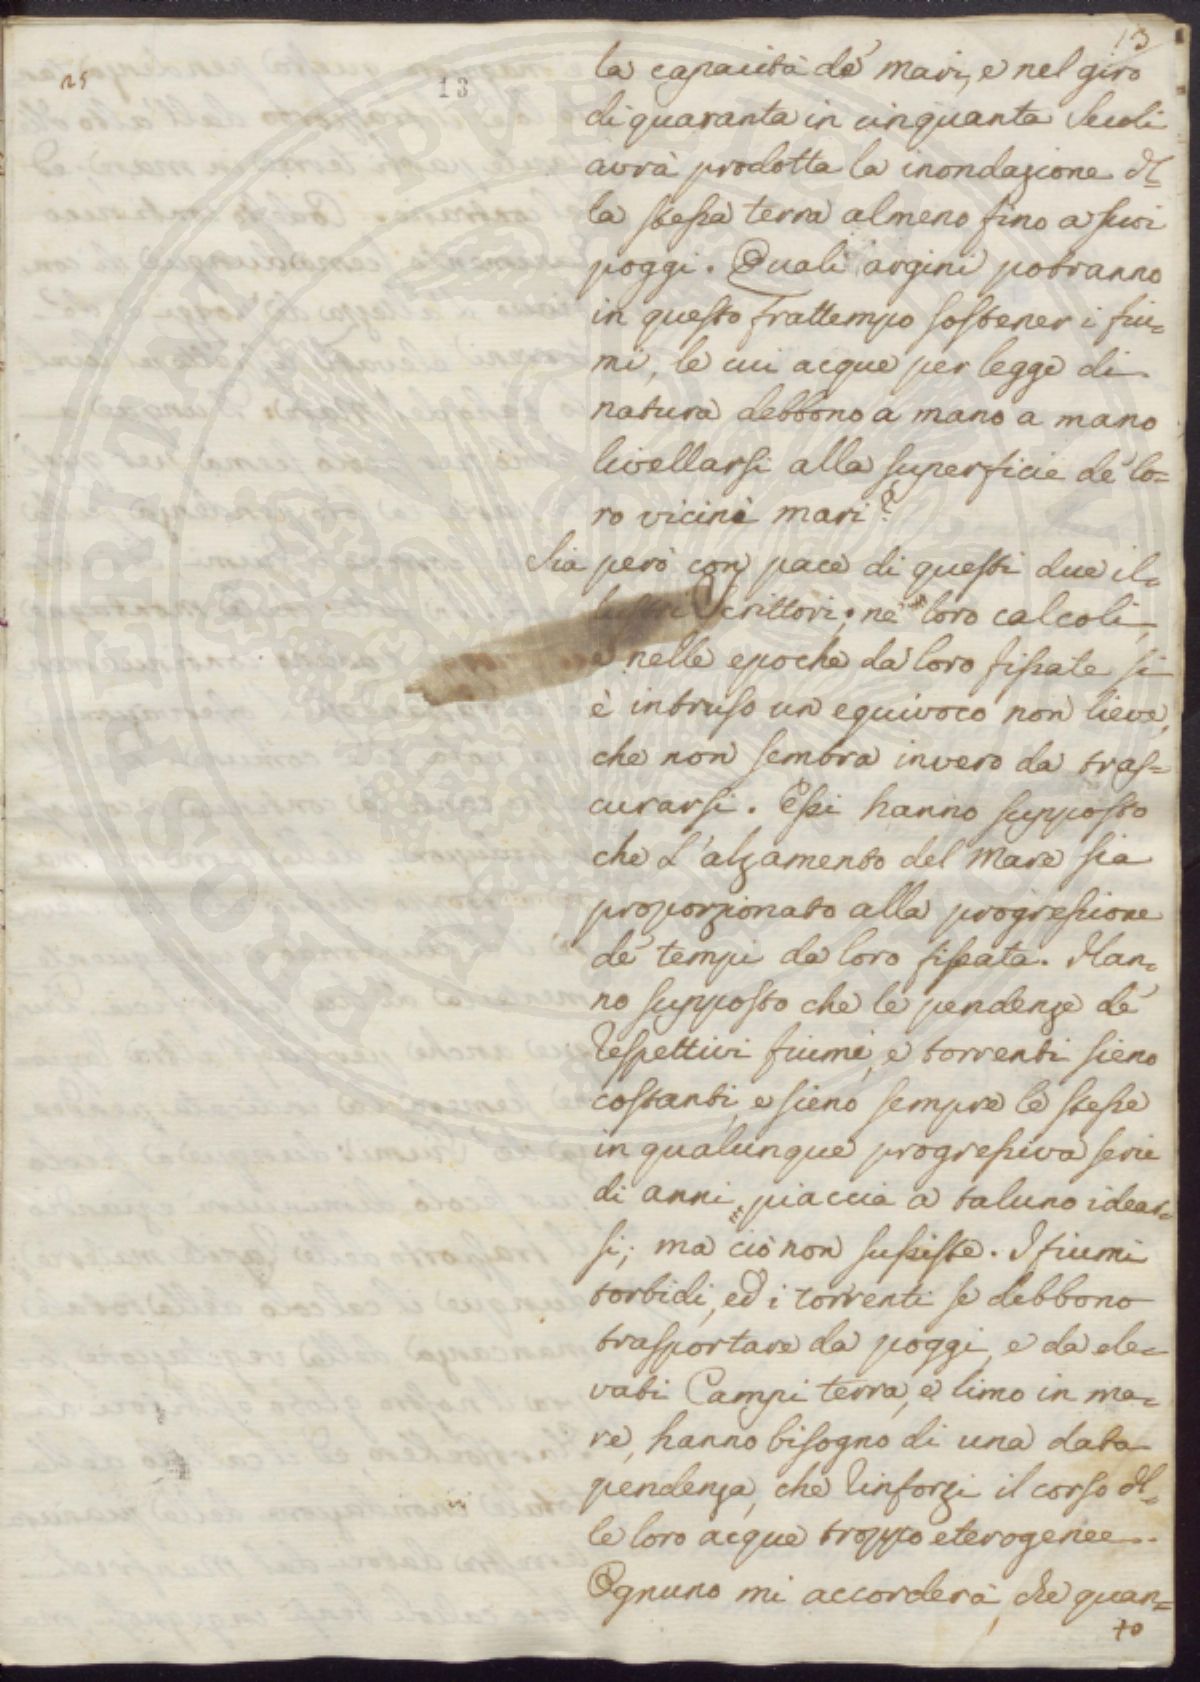 13
25
13
la capacità de' mari, e nel giro
di quaranta in cinquanta Secoli
avrà prodotta la inondazione del-
la stessa terra almeno fino a suoi
poggi. Quali argini potranno
in questo frattempo sostener i fiu=
mi, le cui acque per legge di
natura debbono a mano a mano
livellarsi alla superficie de' lo=
ro vicini mari?
Sia però con pace di questi due il=
lustri Scrittori; ne' loro calcoli,
e nelle epoche da loro fissate si
è intruso un equivoco non lieve,
che non sembra invero da tras=
curarsi. Essi hanno supposto
che l'alzamento del Mare sia
proporzionato alla progressione
de' tempi da loro fissata. Han=
no supposto che le pendenze de'
respettivi fiumi, e torrenti sieno
costanti, e sieno sempre le stesse
in qualunque progressiva serie
di anni piaccia a taluno idear=
si; ma ciò non sussiste. I fiumi
torbidi, ed i torrenti se debbono
trasportare da poggi, e da ele=
vati Campi terra, e limo in ma=
re, hanno bisogno di una data
pendenza, che rinforzi il corso del=
le loro acque troppo eterogenee.
Ognuno mi accorderà, che quan=
to
PROSPERI PVBLICAE